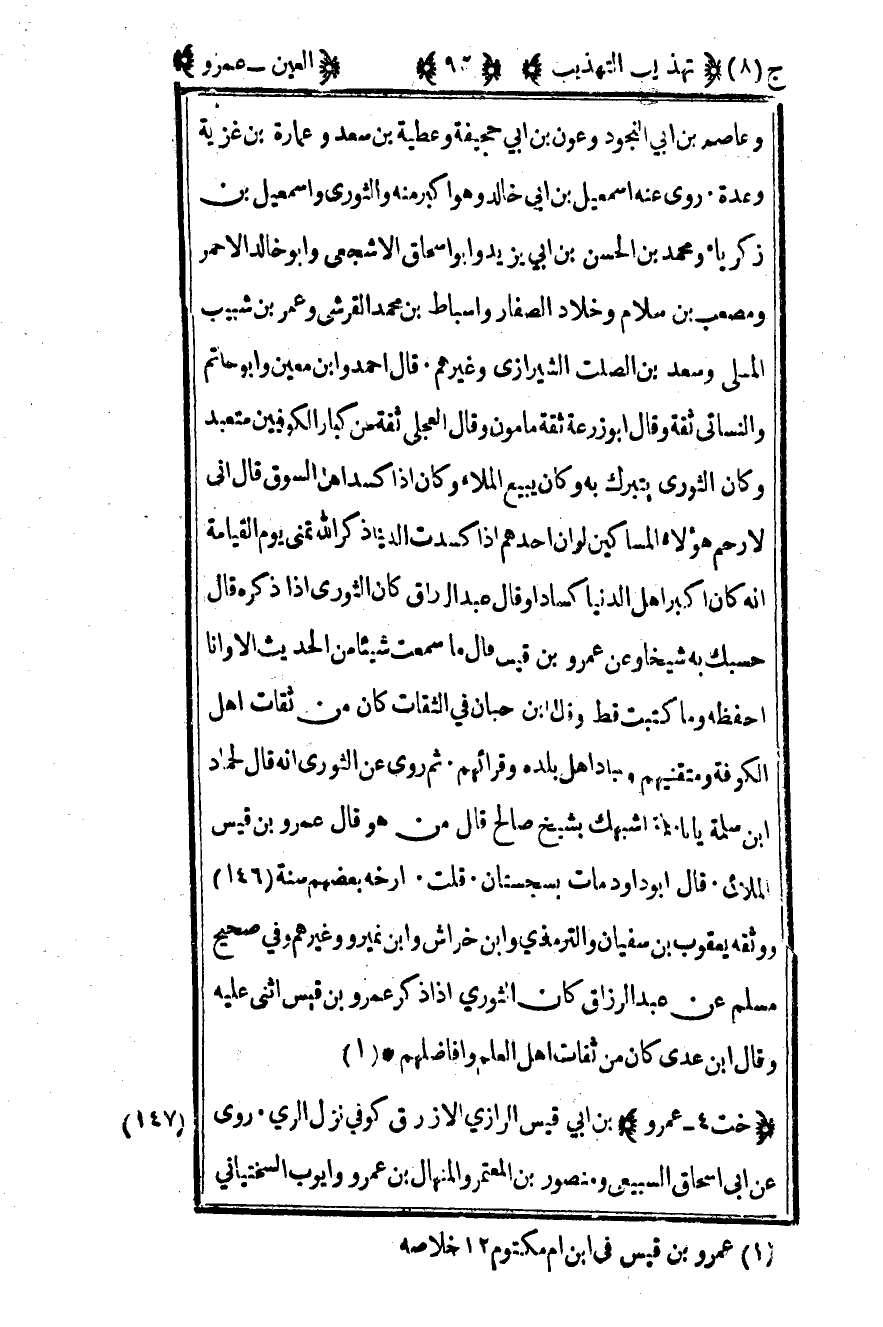 ج (٨) ﴿ تهذيب التهذيب ﴾ ﴿ ٩٣ ﴾ ﴿ العين ـ عمرو ﴾
و عاصم بن ابي النجود وعون بن ابي جحيفة وعطية بن سعد و عمارة بن غزية
وعدة ٠ روى عنه اسمعيل بن ابي خالد وهو اكبر منه والثورى واسمعيل بن
زكرياء ومحمد بن الحسن بن ابي يزيد وابو اسحاق الاشجعى وابو خالد الاحمر
ومصعب بن سلام وخلاد الصفار واسباط بن محمد القرشي وعمر بن شبيب
المسلى وسعد بن الصلت الشيرازى وغيرهم ٠ قال احمد وابن معين وابو حاتم
والنسائى ثقة وقال ابو زرعة ثقة مامون وقال العجلى ثقة من كبار الكوفيين متعبد
وكان الثورى يتبرك به وكان يبيع الملاء وكان اذا كسد اهل السوق قال انى
لارحم هؤلاء المساكين لو ان احدهم اذا كسدت الدنيا ذكر الله تمنى يوم القيامة
انه كان اكبر اهل الدنيا كسادا وقال عبد الرزاق كان الثورى اذا ذكره قال
حسبك به شيخا وعن عمرو بن قيس قال ما سمعت شيئا من الحديث الا وانا
احفظه وما كتبت قط وقال ابن حبان في الثقات كان من ثقات اهل
الكوفة ومتقنيهم وعباد اهل بلده وقرائهم ٠ ثم روى عن الثورى انه قال لحماد
ابن سلمة يا ابا سلمة اشبهك بشيخ صالح قال من هو قال عمرو بن قيس
الملائى ٠ قال ابو داود مات بسجستان ٠ قلت ٠ ارخه بعضهم سنة (١٤٦)
ووثقه يعقوب بن سفيان والترمذي وابن خراش وابن نمير وغيرهم وفي صحيح
مسلم عن عبد الرزاق كان الثوري اذا ذكر عمرو بن قيس اثنى عليه
وقال ابن عدى كان من ثقات اهل العلم وافاضلهم * (١)
﴿ خت ٤ ـ عمرو ﴾ بن ابي قيس الرازي الازرق كوفي نزل الري ٠ روى (١٤٧)
عن ابى اسحاق السبيعى ومنصور بن المعتمر والمنهال بن عمرو وايوب السختياني
(١) عمرو بن قيس فى ابن ام مكتوم ١٢ خلاصه